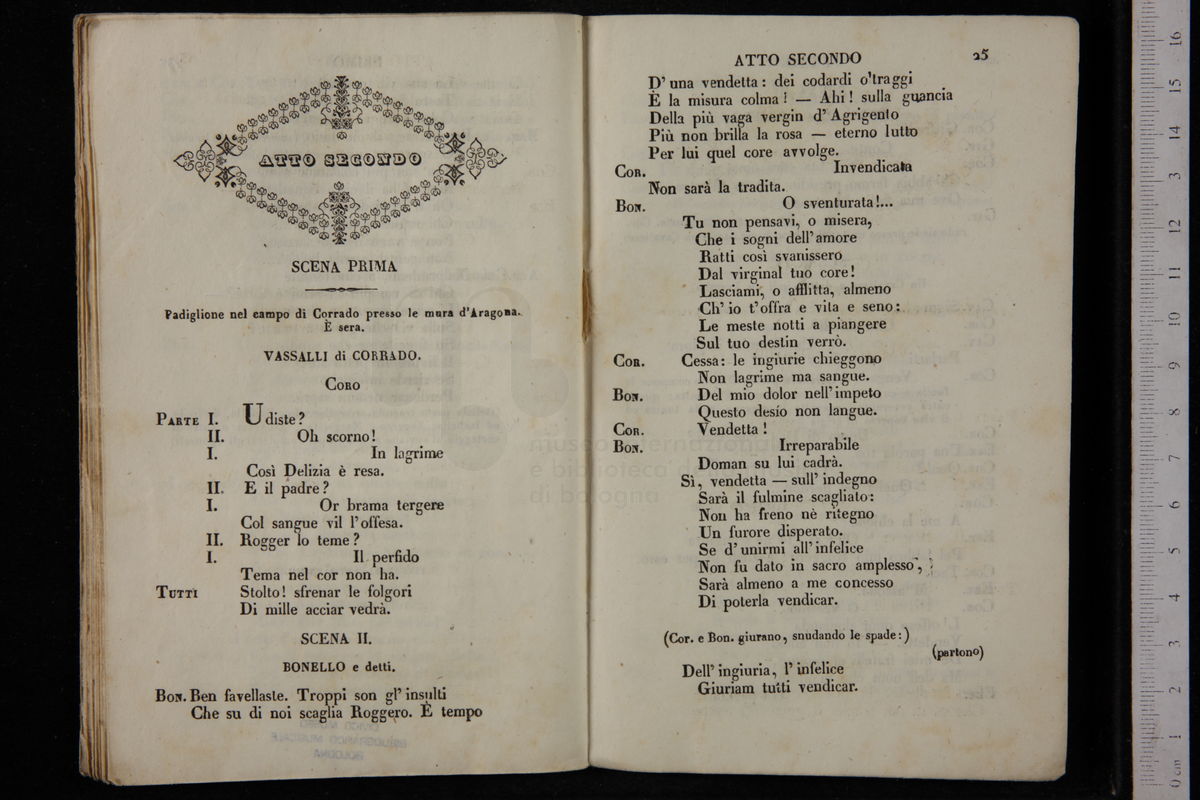 ATTO SECONDO
SCENA PRIMA
Padiglione nel campo di Corrado presso le mura d'Aragona.
È sera.
VASSALLI di CORRADO.
CORO
PARTE I. Udiste?
II. Oh scorno!
I. In lagrime
Così Delizia è resa.
II. E il padre?
I. Or brama tergere
Col sangue vil l'offesa.
II. Rogger lo teme?
I. Il perfido
Tema nel cor non ha.
TUTTI Stolto! sfrenar le folgori
Di mille acciar vedrà.
SCENA II.
BONELLO e detti.
BON. Ben favellaste. Troppi son gl' insulti
Che su di noi scaglia Roggero. È tempo
ATTO SECONDO 25
D' una vendetta: dei codardi o'traggi
È la misura colma! — Ahi! sulla guancia
Della più vaga vergin d' Agrigento
Più non brilla la rosa — eterno lutto
Per lui quel core avvolge.
COR. Invendicata
Non sarà la tradita.
BON. O sventurata!...
Tu non pensavi, o misera,
Che i sogni dell' amore
Ratti così svanissero
Dal virginal tuo core!
Lasciami, o afflitta, almeno
Ch' io t' offra e vita e seno:
Le meste notti a piangere
Sul tuo destin verrò.
COR. Cessa: le ingiurie chieggono
Non lagrime ma sangue.
BON. Del mio dolor nell' impeto
Questo desío non langue.
COR. Vendetta!
BON. Irreparabile
Doman su lui cadrà.
Sì, vendetta — sull' indegno
Sarà il fulmine scagliato:
Non ha freno nè ritegno
Un furore disperato.
Se d' unirmi all' infelice
Non fu dato in sacro amplesso,
Sarà almeno a me concesso
Di poterla vendicar.
(Cor. e Bon. giurano, snudando le spade:)
(partono)
Dell' ingiuria, l' infelice
Giuriam tutti vendicar.
museo internazionale
e biblioteca d
di bologna
16
15
14
13
12
11
10
9
8
7
6
5
4
3
2
1
0 cm